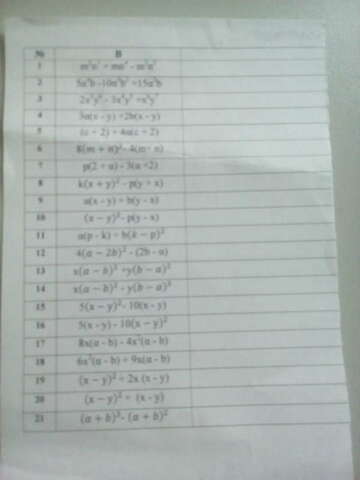 № B
1
2
3
4 3a(x - y) +2b(x - y)
5 (c - 2) - 4a(c - 2)
6 8(m + n)² - 4(m + n)
7 p(2 + a) - 3(a +2)
8 k(x + y)² - p(y + x)
9 a(x - y) + b(y - x)
10 (x - y)² - p(y - x)
11 a(p - k) + b(k - p)²
12 4(a - 2b)² - (2b - a)
13 x(a - b)³ +y(b - a)²
14 x(a - b)³ - y(b - a)²
15 5(x - y)² - 10(x - y)
16 5(x - y) - 10(x - y)²
17 8x(a - b) - 4x²(a - b)
18 6x²(a - b) + 9x(a - b)
19 (x - y)² + 2x (x - y)
20 (x - y)² + (x - y)
21 (a + b)³- (a + b)²